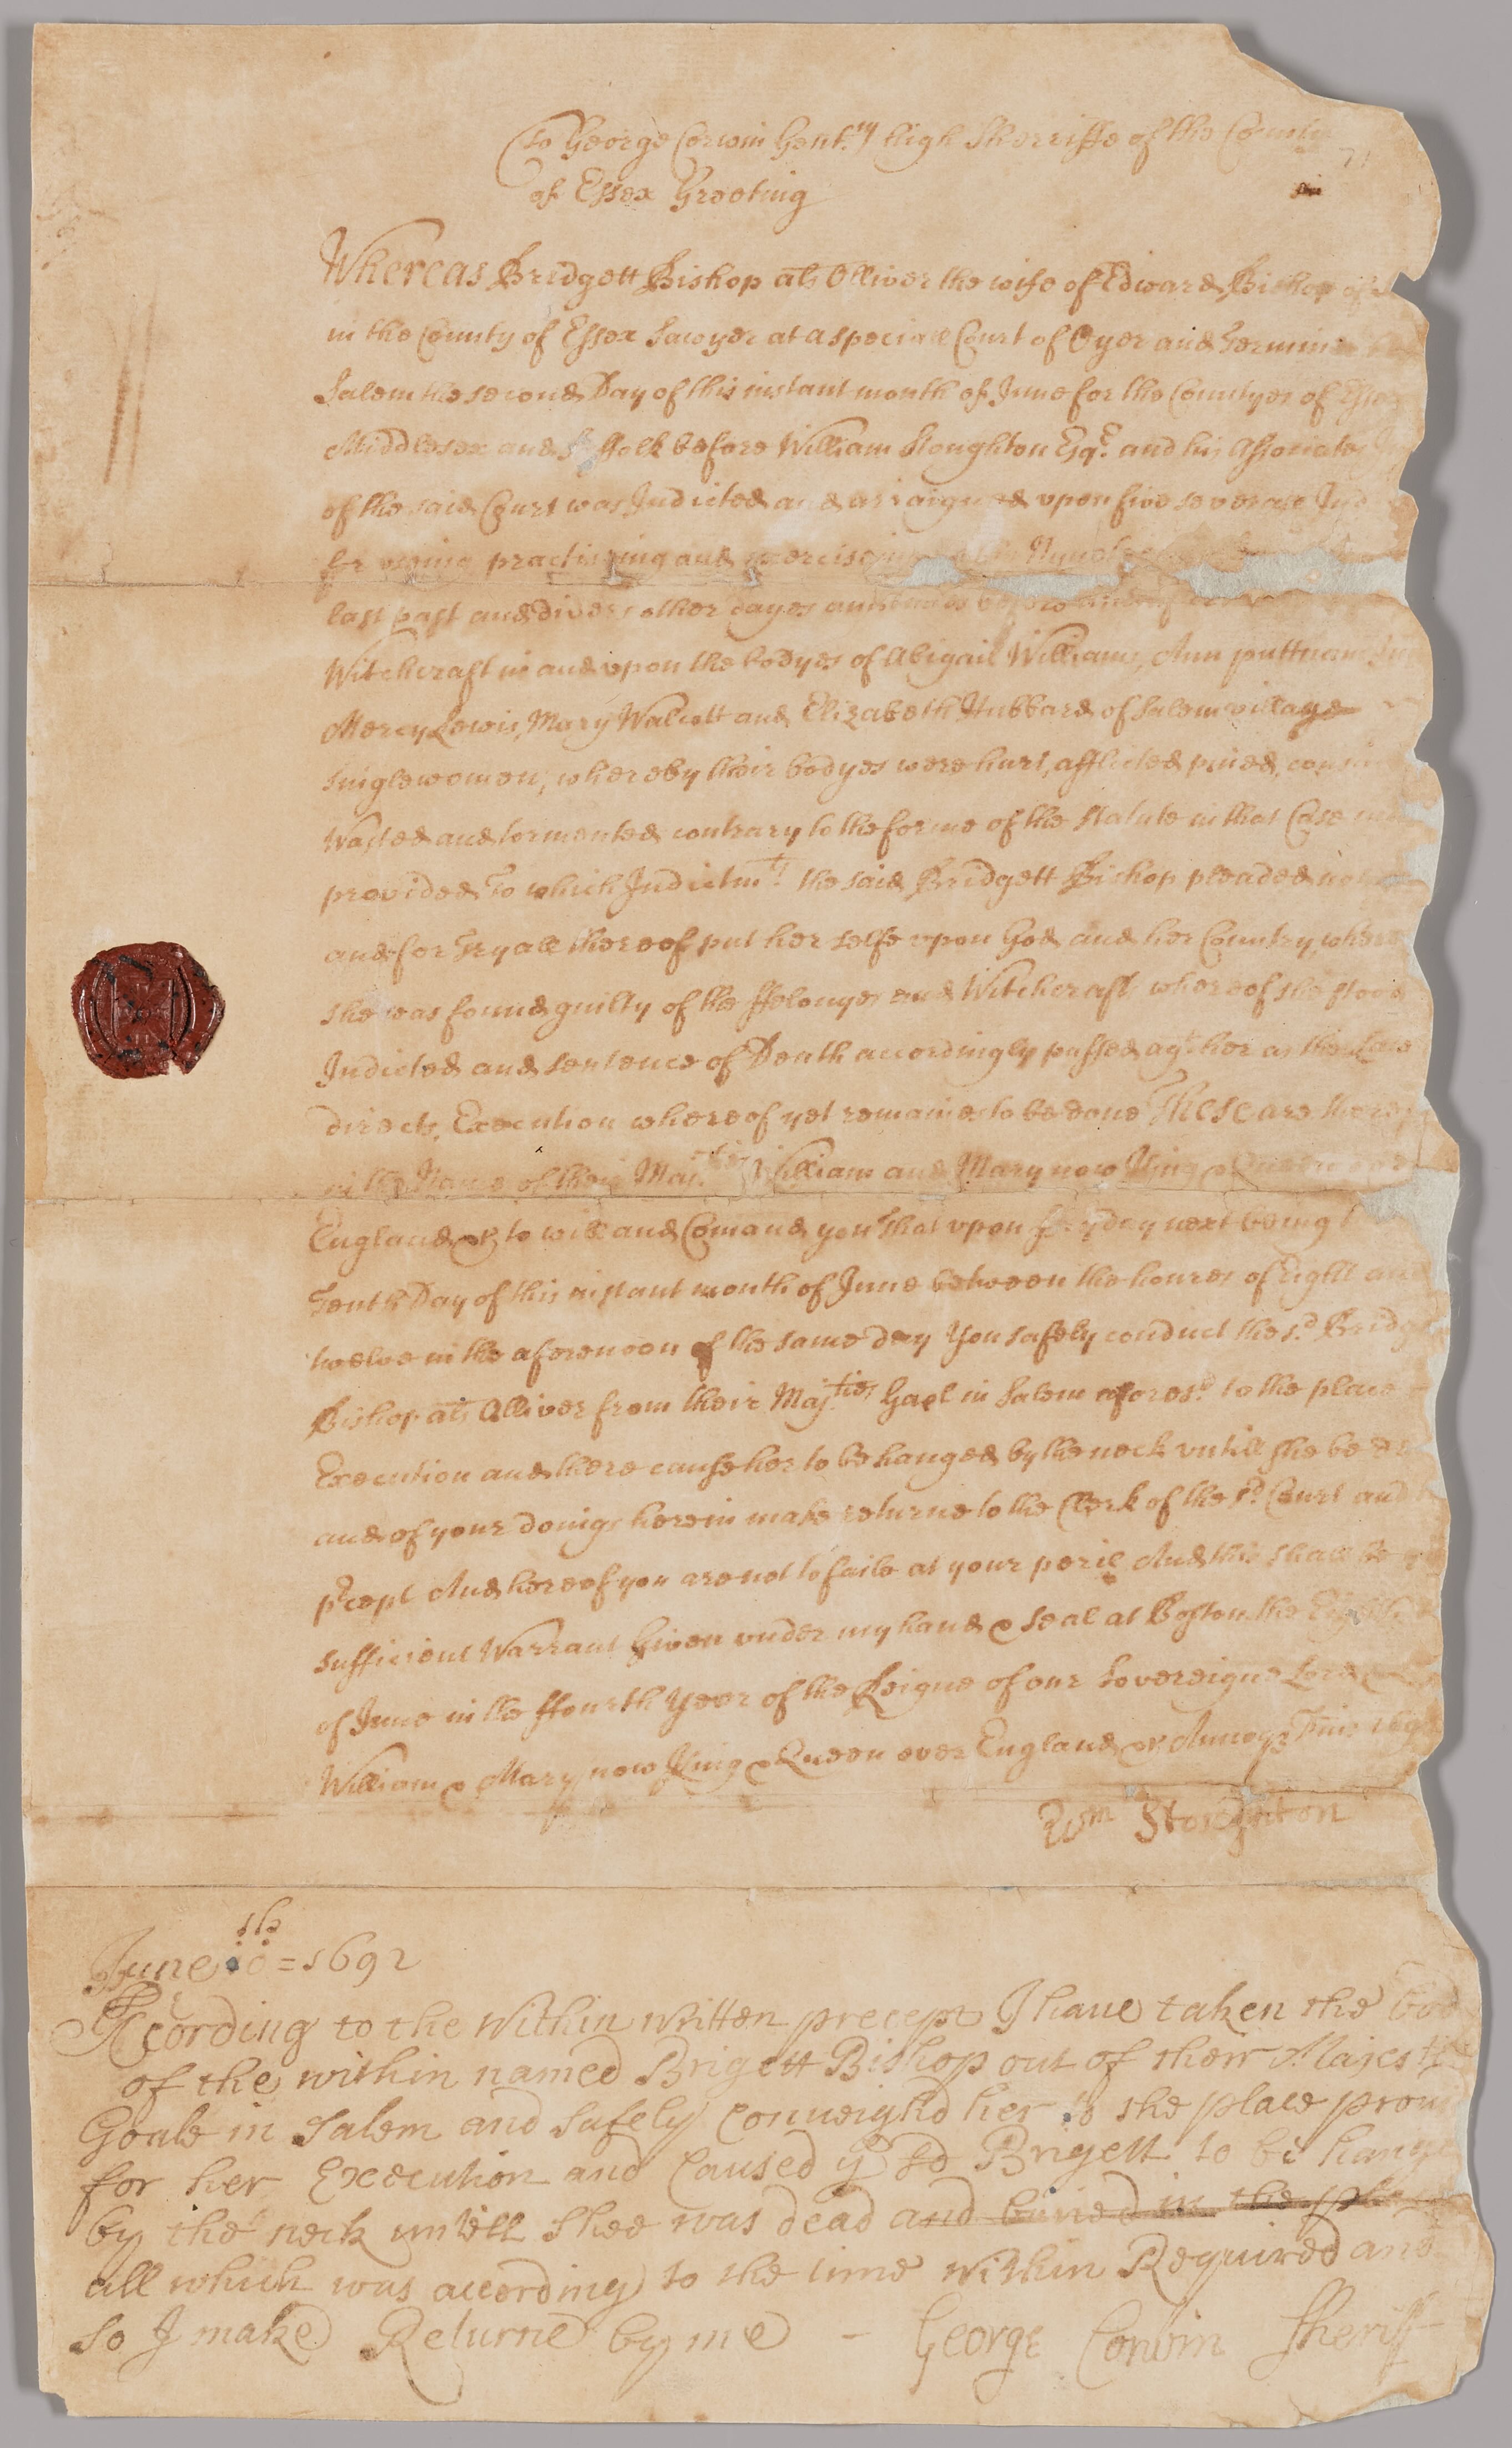 To George Corwin Gentᵐ high Sherriffe of the County
of Essex Greeting
71
Whereas Bridgett Bishop als Olliver the wife of Edward Bishop of
in the County of Essex Sawyer at a speciall Court of Oyer and Termin
Salem the second Day of this instant month of June for the Countyes of Esse
Middlesex and Suffolk before William Stoughton Esqᵉ. and his Associates
of the said Court was Indicted and arraigned upon five severall Ind
for vseing practissing and exercising
last past and divers other dayes and times before and after
Witchcraft in and vpon the bodyes of Abigail Williams, Ann puttnam Ju
Mercy Lewis, Mary Walcott and Elizabeth Hubbard of Salem village
singlewomen; whereby their bodyes were hurt, afflicted pined, consu
Wasted and tormented contrary to the forme of the Statute in that Case
provided To which Indictmᵗˢ the said Bridgett Bishop pleaded not
and for Tryall thereof put her selfe vpon God and her Country, where
she was found guilty of the ffelonyes and Witchcraft whereof she stood
Indicted and sentence of Death accordingly passed agᵗ her as the Law
directs, Execution whereof yet remaines to be done These are there
in the Name of their Majᵗⁱᵉˢ William and Mary now King & Queen over
England &c to will and Comand you That vpon ffryday next being t
Tenth Day of this instant month of June between the houres of Eight and
twelve in the aforenoon of the same day You safely conduct the sᵈ Bridg
Bishop als Olliver from their Majᵗⁱᵉˢ Gaol in Salem aforesᵈ to the place
Execution and there cause her to be hanged by the neck vntill she be de
and of your doings herein make returne to the Clerk of the sᵈ Court and
pʳcept And hereof you are not to faile at your peril And this shall be
sufficient Warrant Given under my hand & seal at Boston the Eighth
of June in the ffourth Year of the Reigne of our Sovereigne Lord
William & Mary now King & Queen over England &c Annoqe Dnie 169
Wm Stoughton
June 10th = 1692
According to the Within written precept I haue taken the bod
of the within named Brigett Bishop out of theirr Majesti
Goale in Salem and Safely Conueighd her to the place proui
for her Execution and Caused yᵉ sd Brigett to be hange
by the neck untill Shee was dead and buried in the pla
all which was according to the time within Required and
So I make Returne by me - George Corwin Sheriff